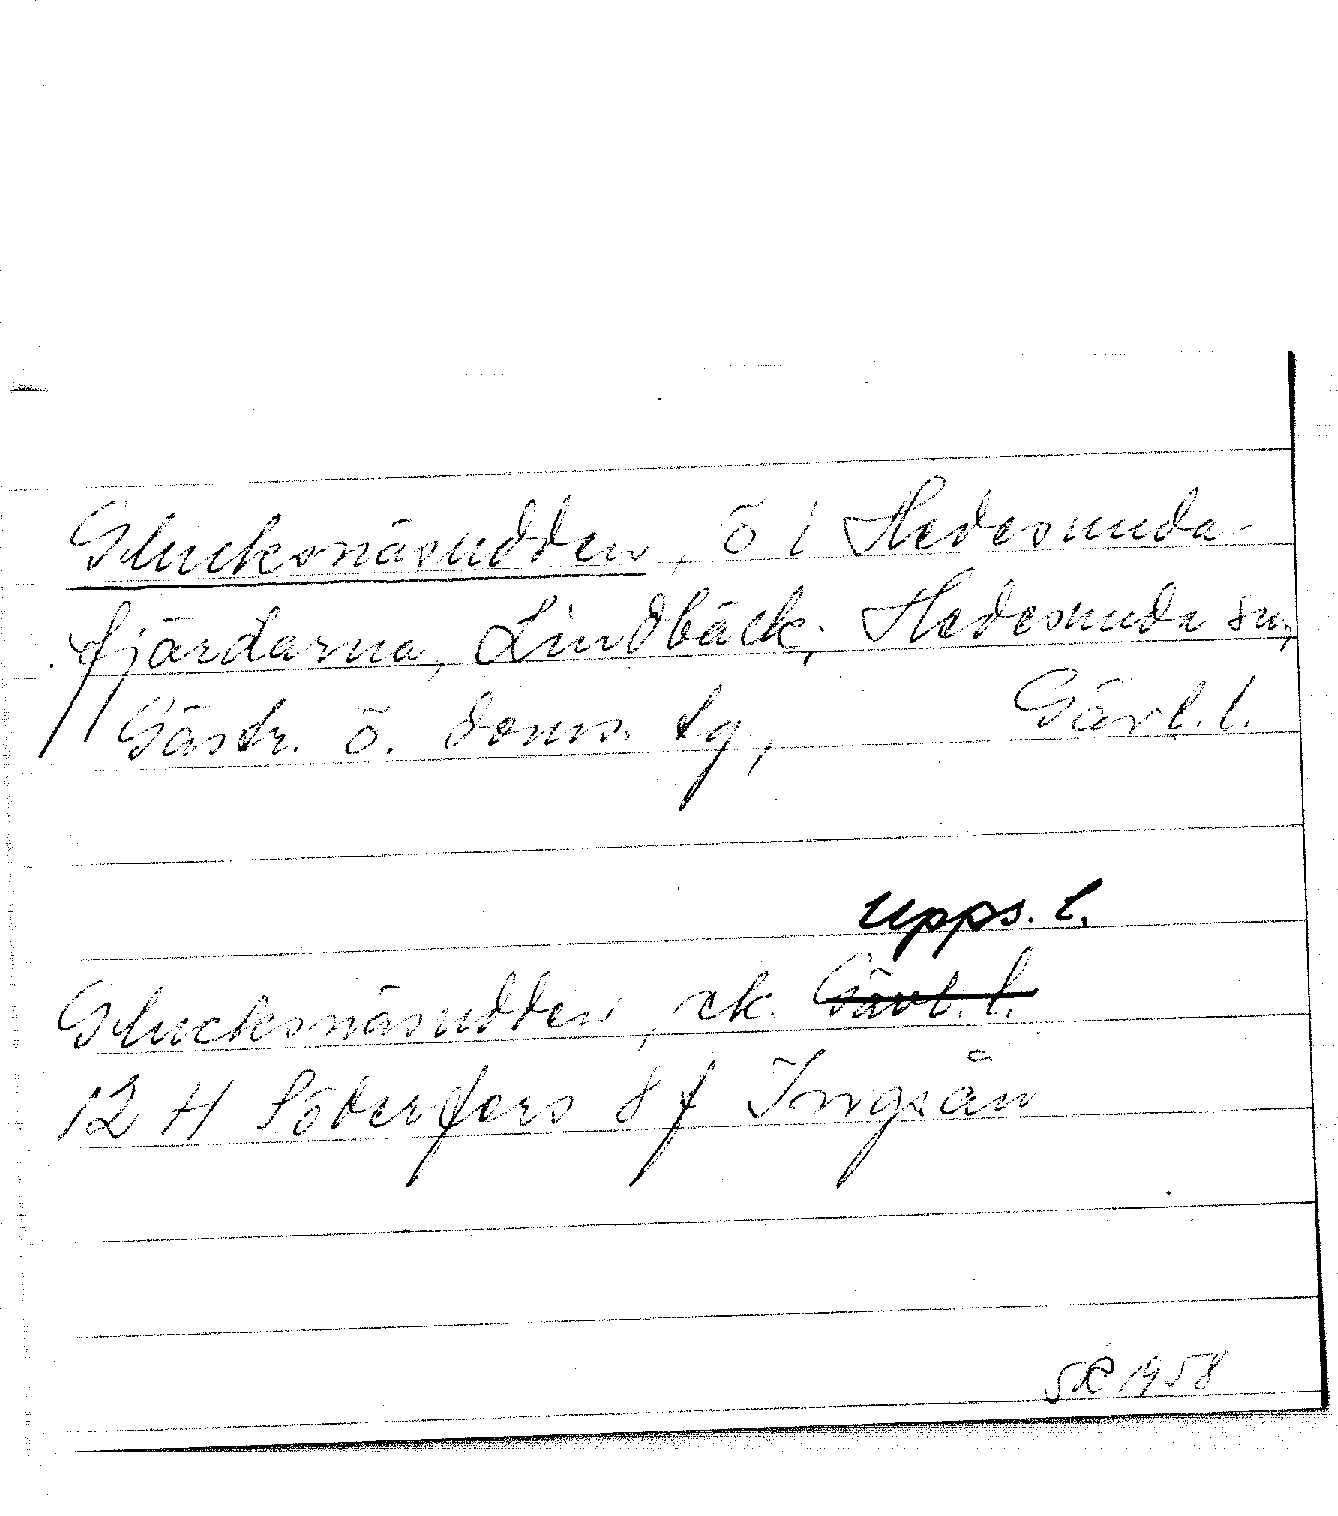 Glucksnäsudden, ö i Hedesunda-
fjärdarna, Lindbäck, Hedesunda sn,
Gästr. ö. doms. tg, Gävl. l.
Upps. l.
Glucksnäsudden, ek. Gävl. l.
12 H Söderfors 8 f Ingsån
1958